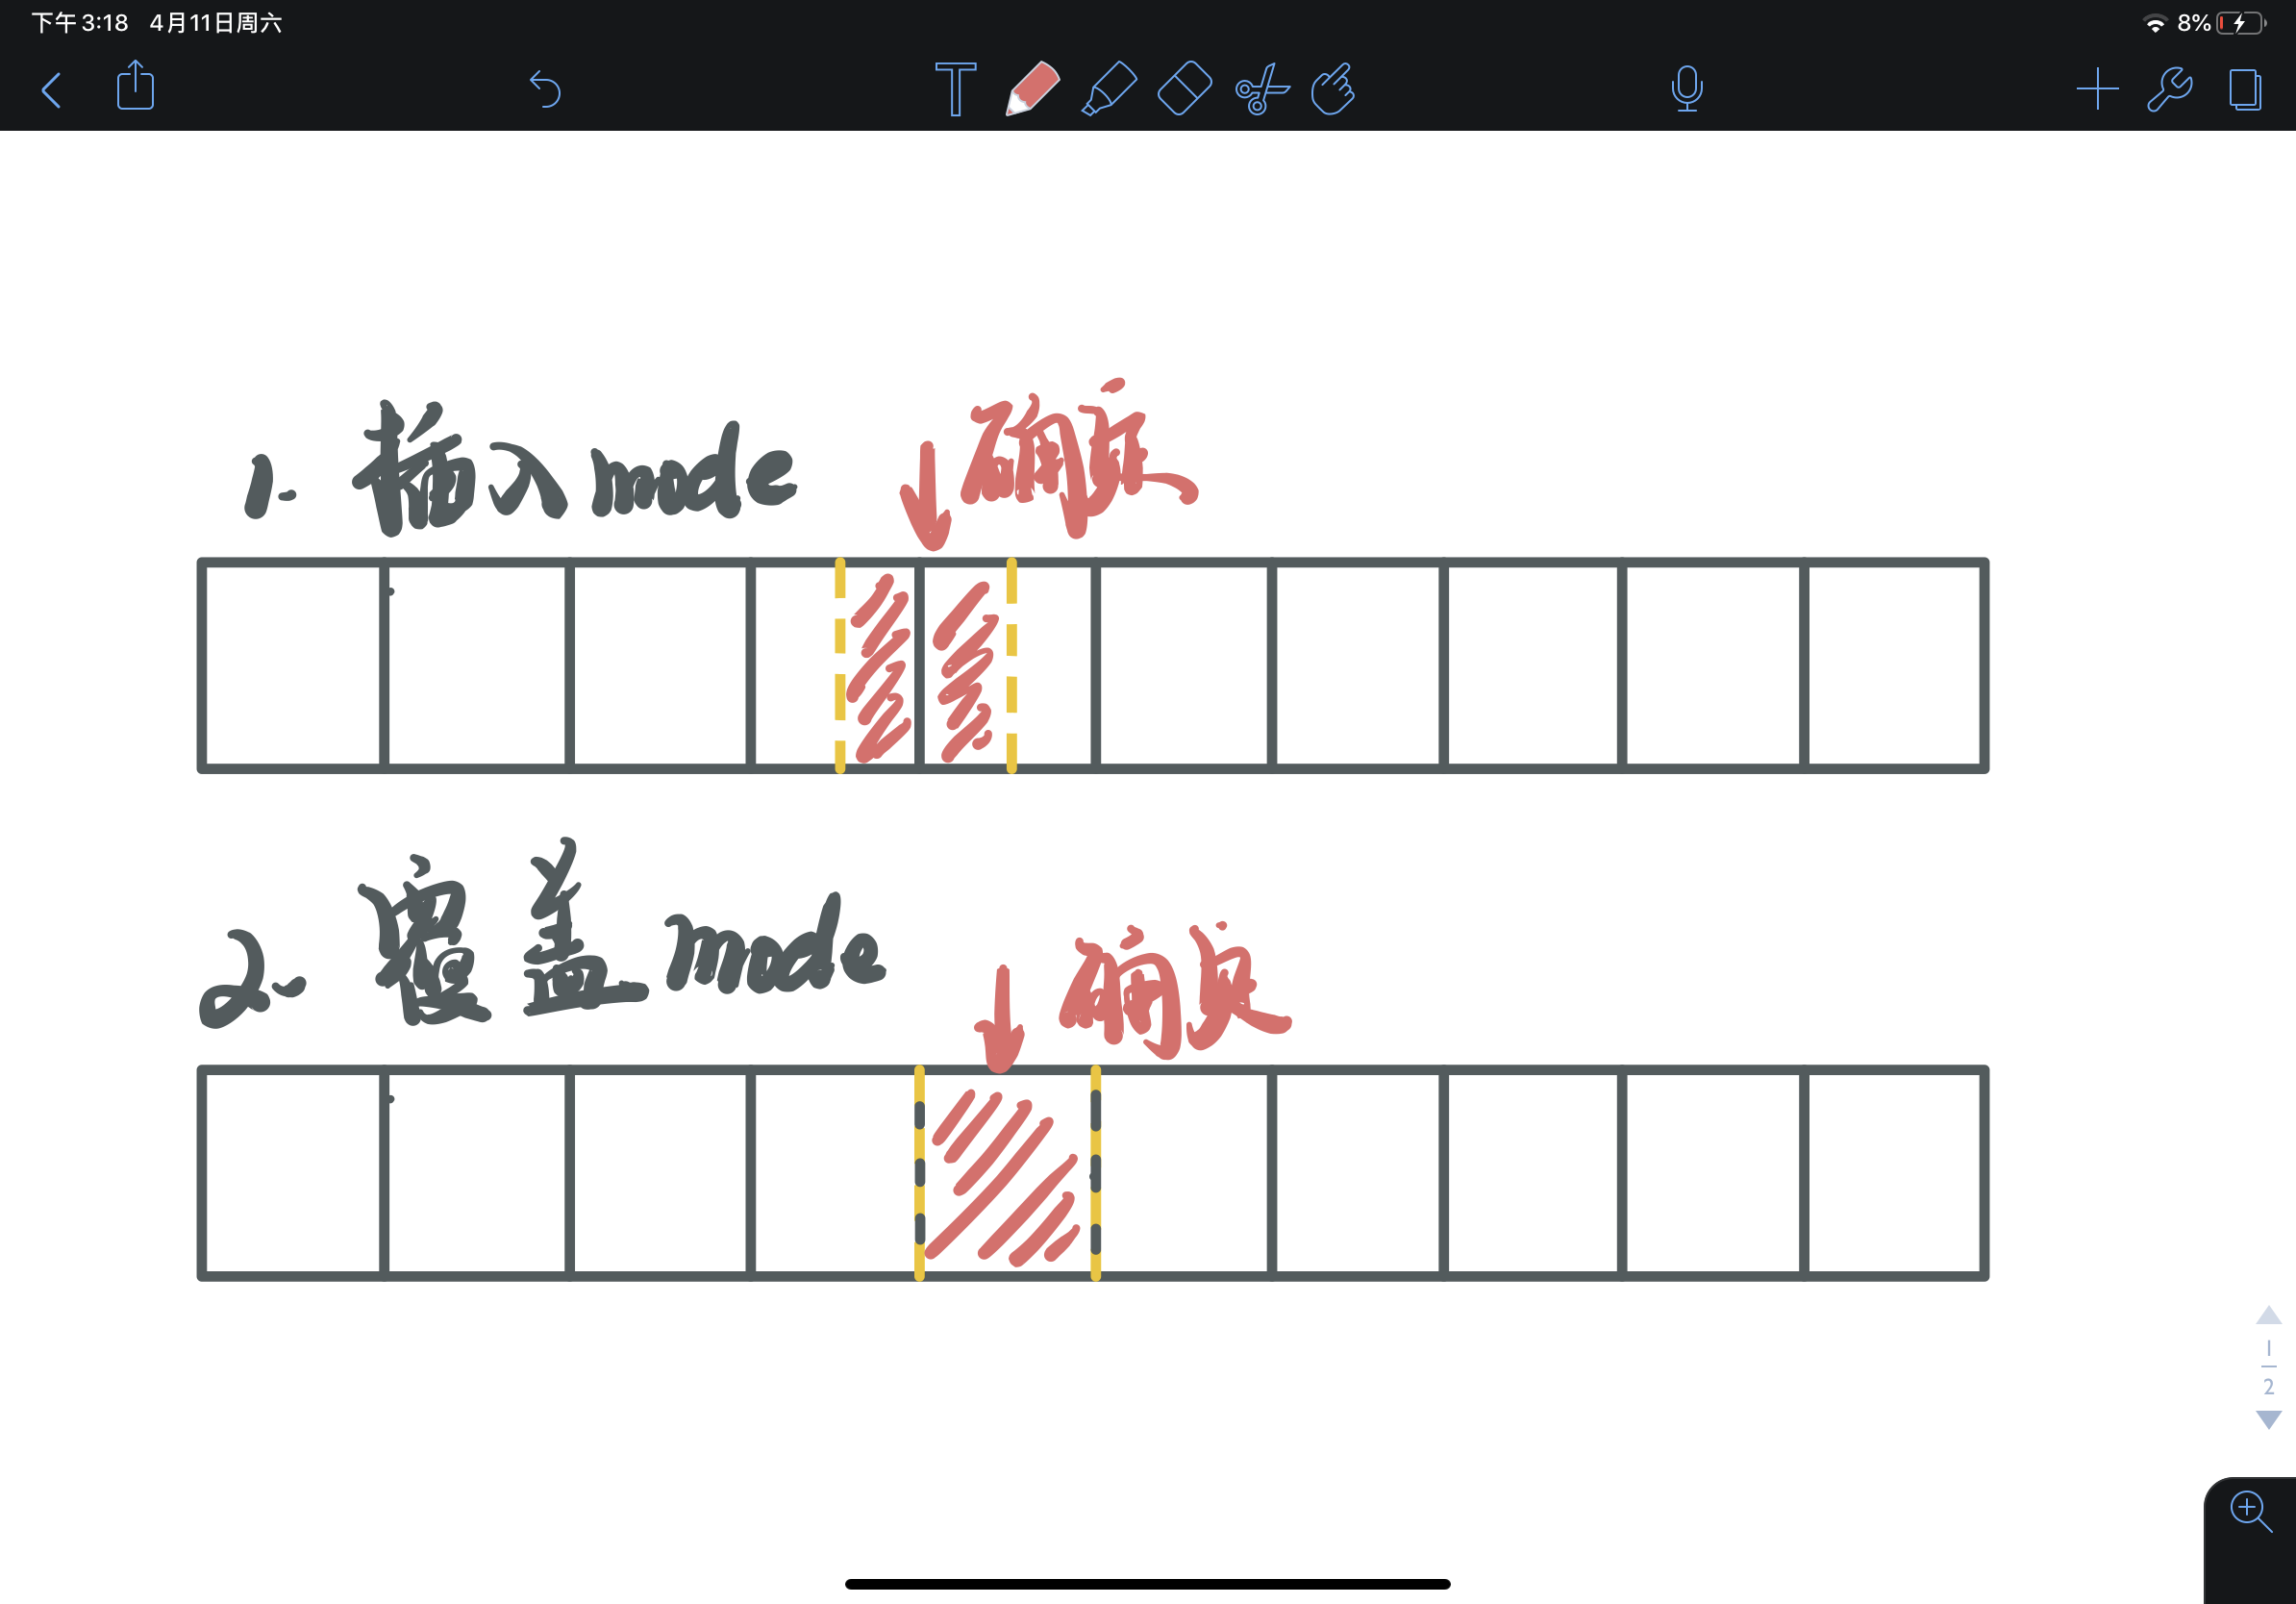 下午3:18 4月11日周六
8%
T
1. 插入mode
↓ 确底
2. 覆盖mode
1
2